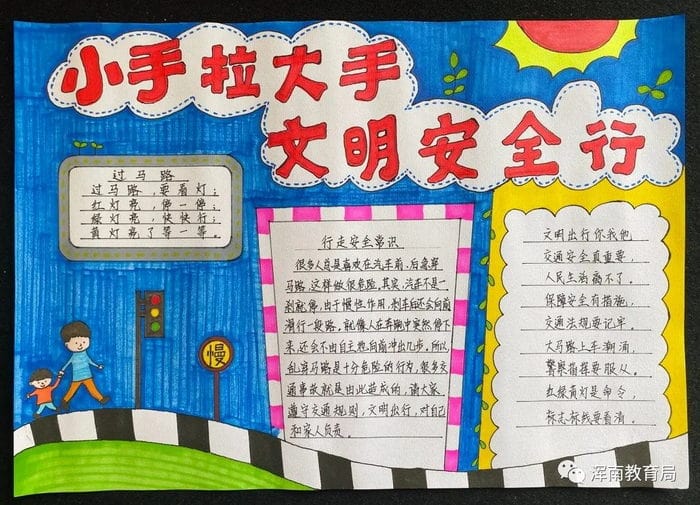 小手拉大手
文明安全行
过马路
过马路,要看灯;
红灯亮,停一停;
绿灯亮,快快行;
黄灯亮了等一等。
慢
行走安全常识
很多人总是喜欢在汽车前、后急穿
马路,这样做很危险,其实,汽车不是一
刹就停,由于惯性作用,刹车后还会向前
滑行一段路,就像人在奔跑中突然停下
来,还会不由自主地向前冲出几步,所以
乱穿马路是十分危险的行为,很多交
通事故就是由此造成的,请大家
遵守交通规则,文明出行,对自己
和家人负责。
文明出行你我他
交通安全真重要,
人民生活离不了。
保障安全有措施,
交通法规要记牢。
大马路上车潮涌,
警察指挥要服从。
红绿黄灯是命令,
标志标线要看清。
浑南教育局